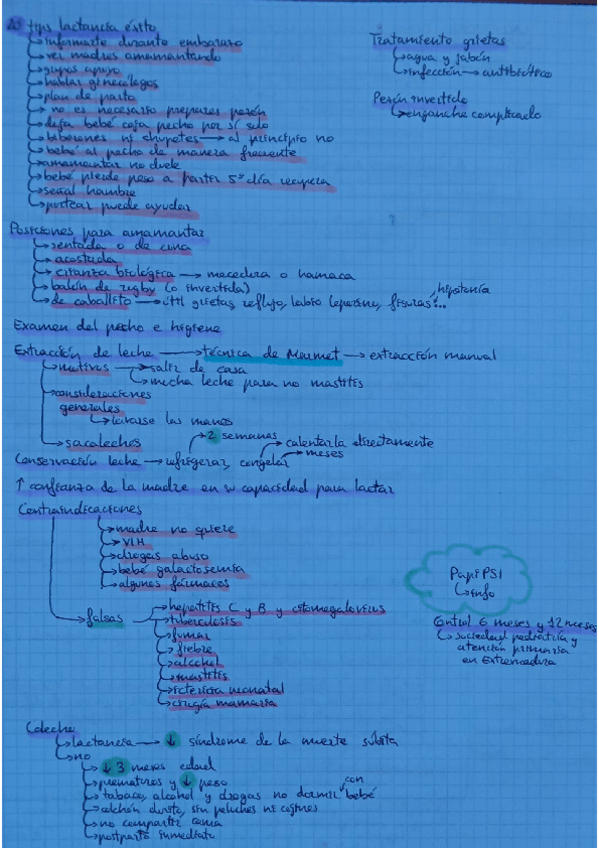 tips lactancia éxito
informarte durante embarazo
ver madres amamantando
grupos apoyo
hablar ginecólogos
plan de parto
no es necesario preparar pezón
deja bebé coja pecho por sí solo
biberones ni chupetes → al principio no
bebé al pecho de manera frecuente
amamantar no duele
bebé pierde peso a partir 5º día recupera
señal hambre
puede ayudar
Tratamiento grietas
agua y jabón
infección → antibiótico
Pezón invertido
enganche complicado
Posiciones para amamantar
sentada o de cuna
acostada
crianza biológica → mecedora o hamaca
balón de rugby (o invertida)
de caballito → útil grietas, reflujo, labio leporino, fisuras, hipotonía...
Examen del pecho e higiene
Extracción de leche → técnica de Marmet → extracción manual
motivos → salir de casa
mucha leche para no mastitis
consideraciones
generales
lavarse las manos
sacaleches
2 semanas
calentarla directamente
Conservación leche → refrigerar, congelar → meses
↑ confianza de la madre en su capacidad para lactar
Contraindicaciones
madre no quiere
VIH
drogas abuso
bebé galactosemia
algunos fármacos
falsas → hepatitis C y B y citomegalovirus
tuberculosis
fumar
fiebre
alcohol
mastitis
ictericia neonatal
cirugía mamaria
PapiPSI
info
Control 6 meses y 12 meses
sociedad pediatría y
atención primaria
en Extremadura
Colecho
lactancia → ↓ síndrome de la muerte súbita
no
↓ 3 meses edad
prematuros y ↓ peso
tabaco, alcohol y drogas no dormir con bebé
colchón duro, sin peluches ni cojines
no compartir cama
postparto inmediato